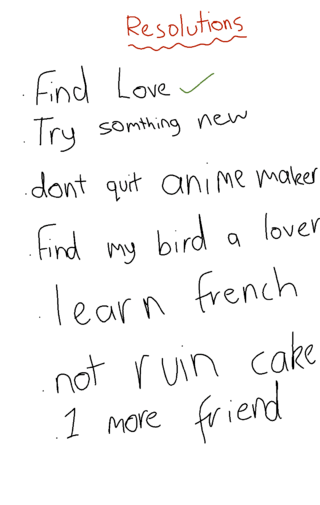 Resolutions
. Find Love ✓
. Try somthing new
. dont quit anime maker
. find my bird a lover
. learn french
. not ruin cake
. 1 more friend